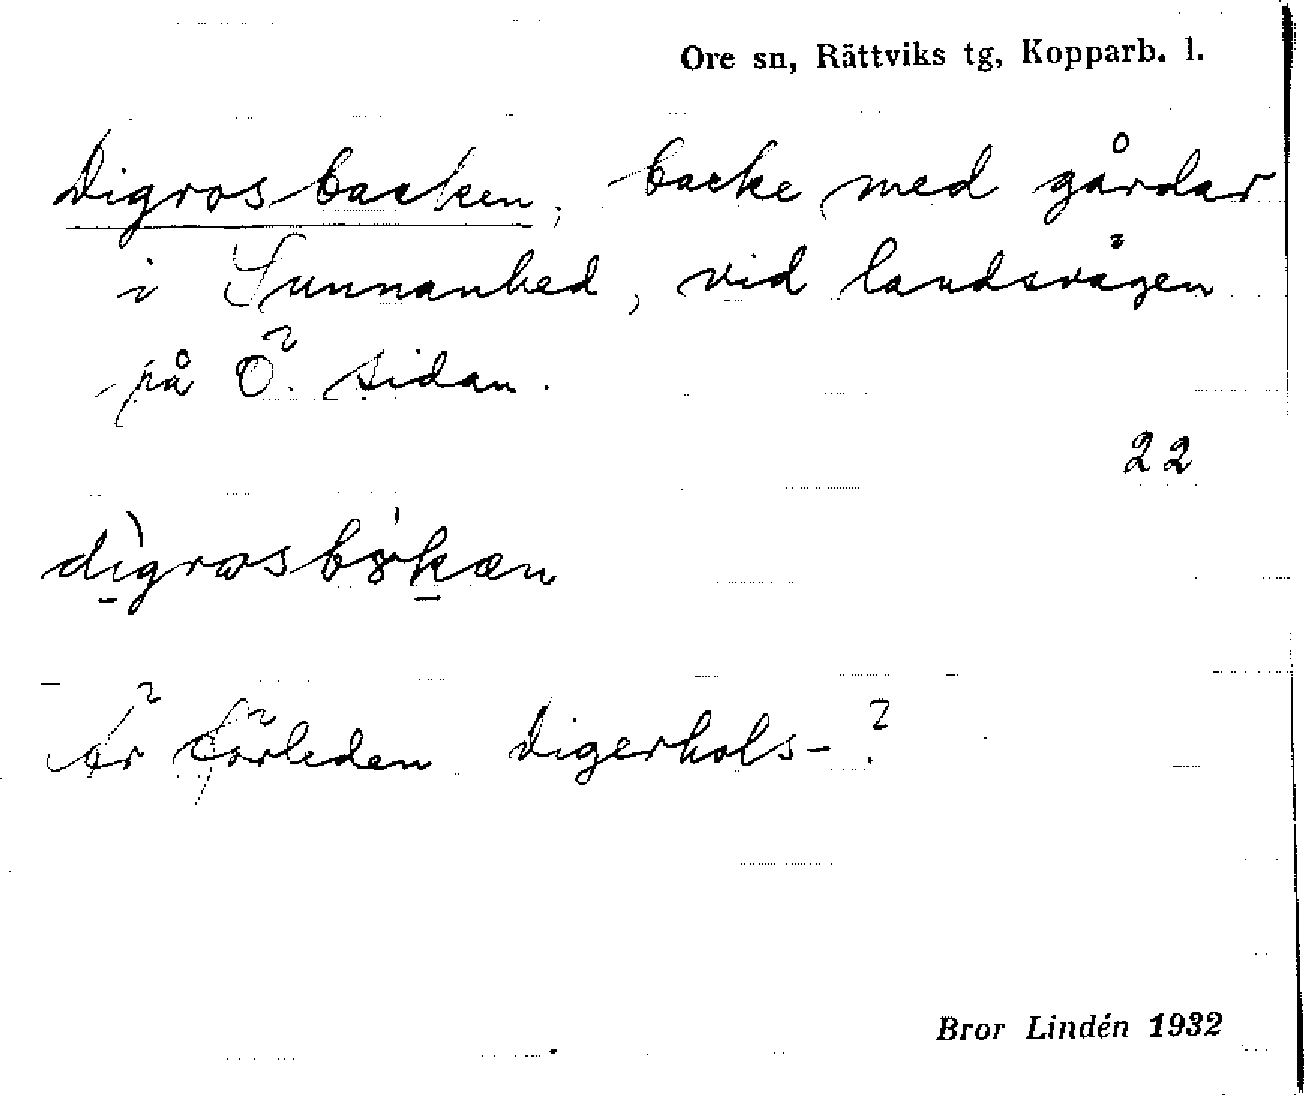 Ore sn, Rättviks tg, Kopparb. l.
Digrosbacken, backe med gårdar
i Sunnanhed, vid landsvägen
på Ö. sidan.
22
dìgrosbökæn
Är förleden Digerhols-?
Bror Lindén 1932